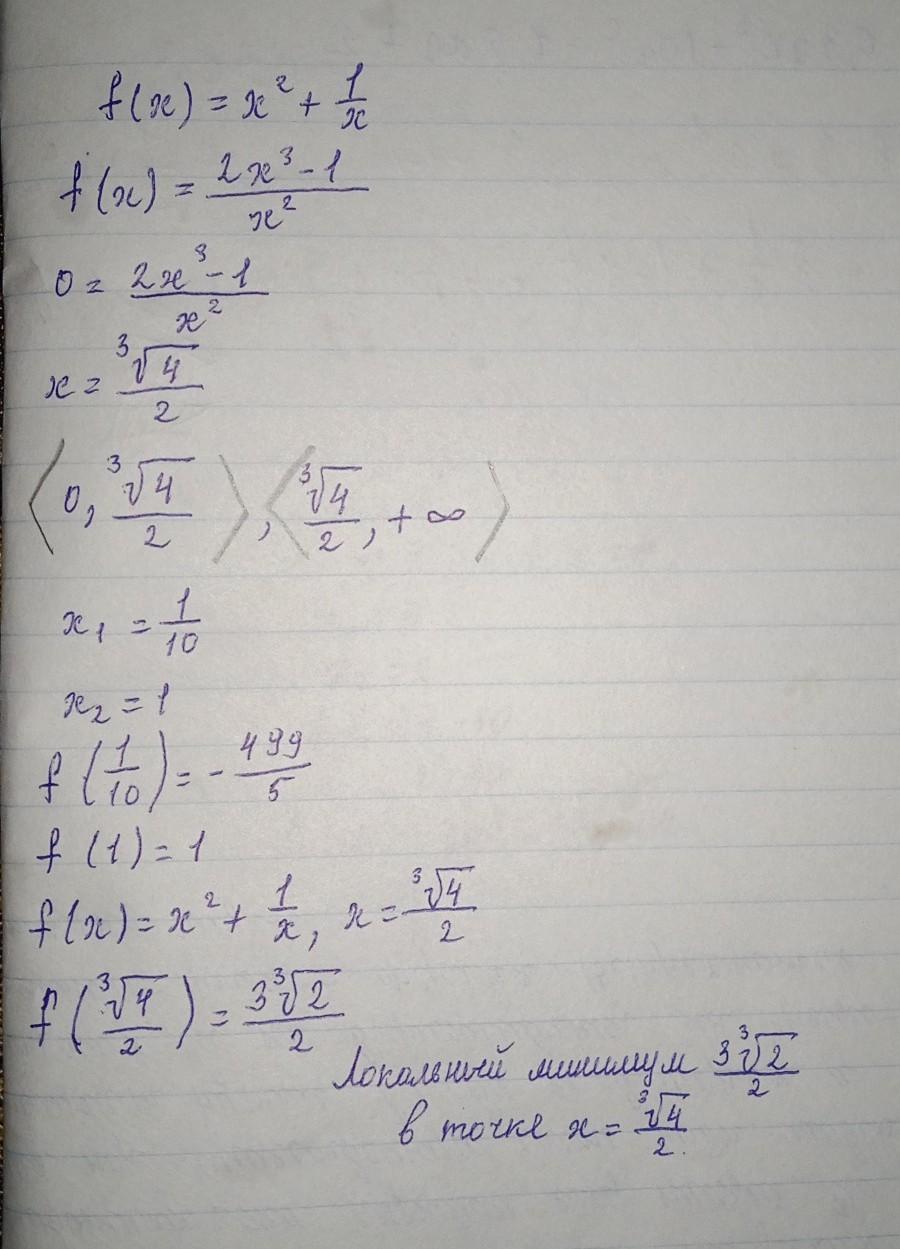 f(x) = x² + 1/x
f(x) = (2x³ - 1)/x²
0 = (2x³ - 1)/x²
x = ∛4/2
⟨0, ∛4/2⟩, ⟨∛4/2, +∞⟩
x₁ = 1/10
x₂ = 1
f(1/10) = - 499/5
f(1) = 1
f(x) = x² + 1/x, x = ∛4/2
f(∛4/2) = 3∛2/2
Локальный минимум 3∛2/2
в точке x = ∛4/2.